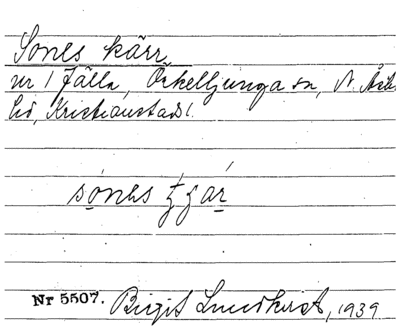 Sones kärr
nr 1 Fälla, Örkelljunga sn, N. Åsb.
hd, Kristianstads l.
sones kär
Nr 5507. Birgit Lundkvist, 1939